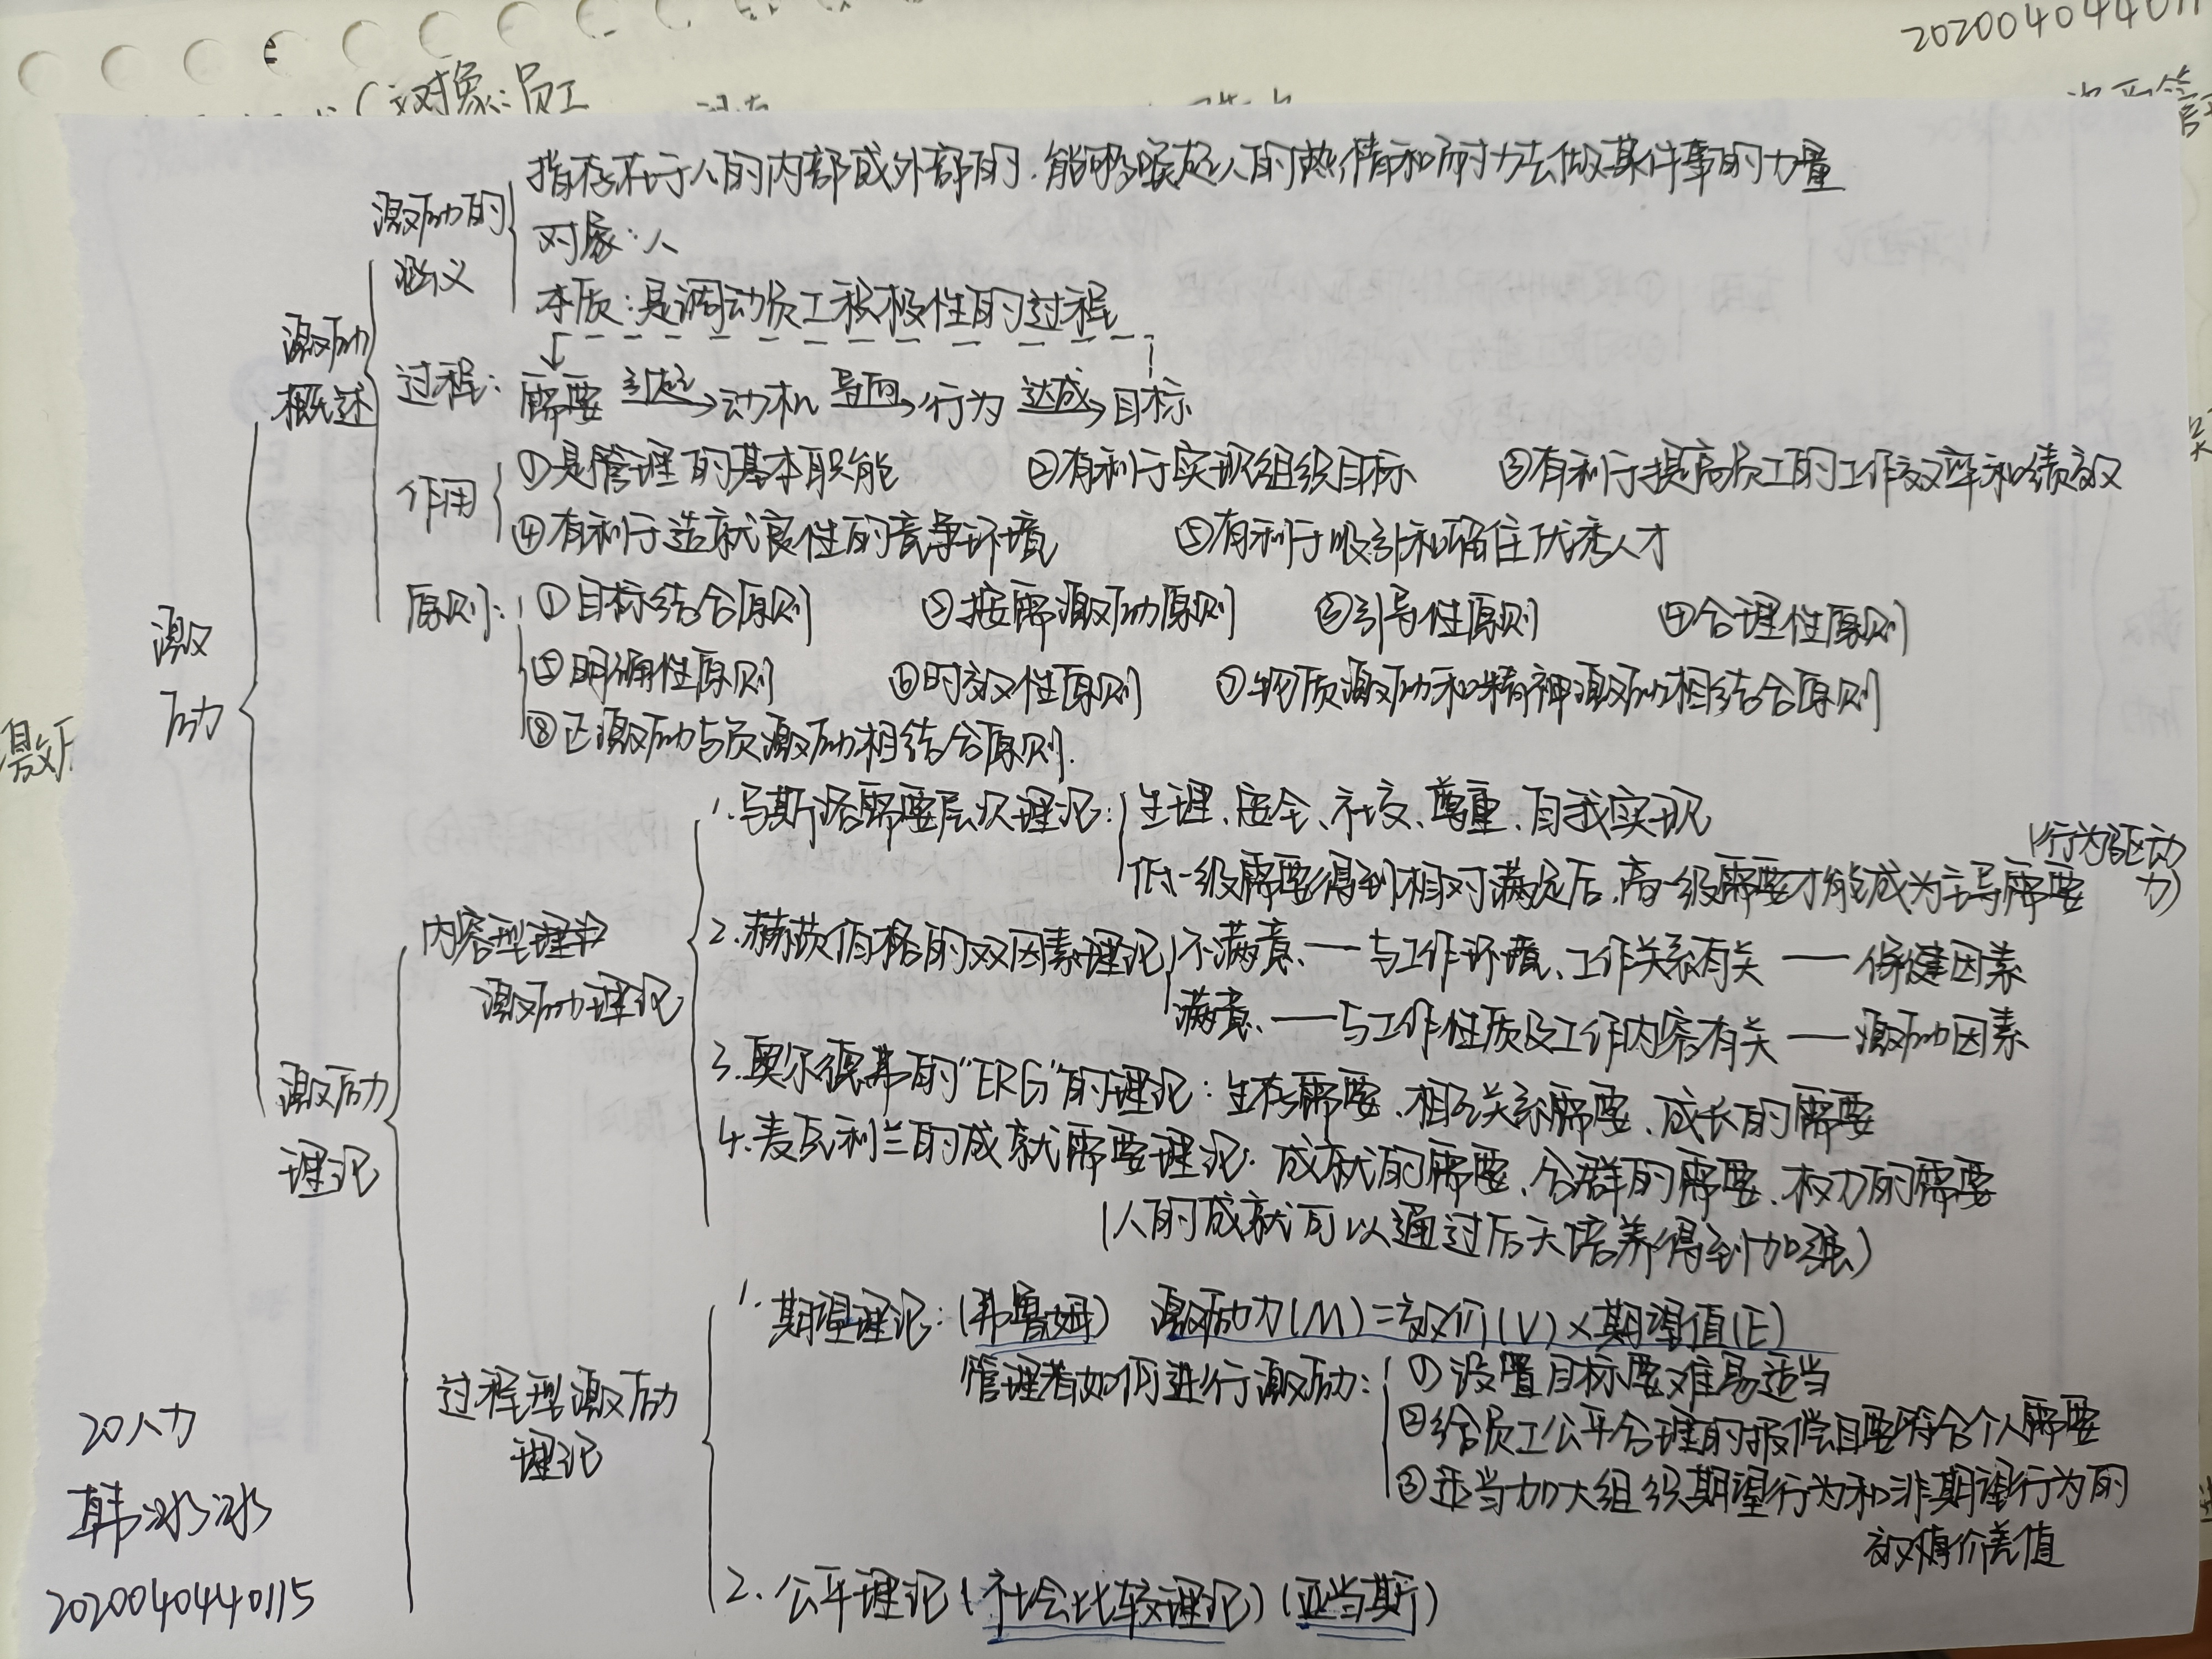 2020040440115
对象:员工
激励的
涵义
指存在于人的内部或外部的,能够唤起人的热情和耐力去做某件事的力量
对象:人
本质:是调动员工积极性的过程
激励
概述
过程:
需要 引起→动机 导向→行为 达成→目标
作用
①是管理的基本职能 ②有利于实现组织目标 ③有利于提高员工的工作效率和绩效
④有利于造就良性的竞争环境 ⑤有利于吸引和留住优秀人才
原则:
①目标结合原则 ②按需激励原则 ③引导性原则 ④合理性原则
⑤明确性原则 ⑥时效性原则 ⑦物质激励和精神激励相结合原则
⑧正激励与负激励相结合原则.
激
励
激励
理论
内容型
激励理论
1.马斯洛需要层次理论:生理、安全、社交、尊重、自我实现
低一级需要得到相对满足后,高一级需要才能成为主导需要
(行为驱动
力)
2.赫茨伯格的双因素理论 不满意——与工作环境、工作关系有关——保健因素
满意——与工作性质及工作内容有关——激励因素
3.奥尔德弗的"ERG"的理论:生存需要、相互关系需要、成长的需要
4.麦克利兰的成就需要理论:成就的需要、合群的需要、权力的需要
(人的成就可以通过后天培养得到加强)
过程型激励
理论
1.期望理论:(弗鲁姆) 激励力(M)=效价(V)×期望值(E)
管理者如何进行激励:①设置目标要难易适当
②给员工公平合理的报偿且要符合个人需要
③适当加大组织期望行为和非期望行为的
效价差值
2.公平理论(社会比较理论)(亚当斯)
20人力
韩冰冰
2020040440115